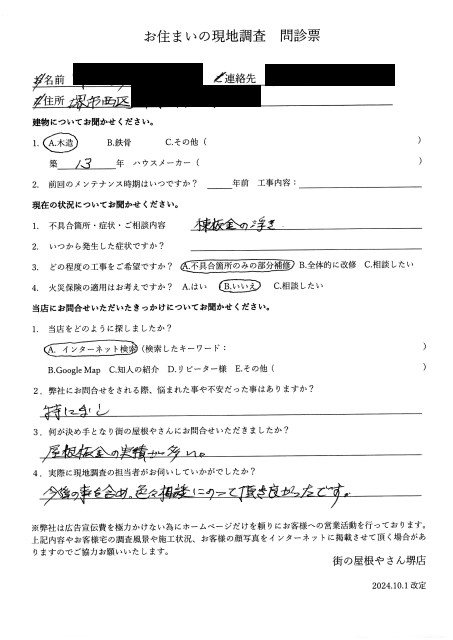 お住まいの現地調査　問診票
名前
連絡先
住所 堺市西区
建物についてお聞かせください。
1. A.木造　B.鉄骨　C.その他（　）
築 13 年　ハウスメーカー（　）
2. 前回のメンテナンス時期はいつですか？　年前　工事内容：
現在の状況についてお聞かせください。
1. 不具合箇所・症状・ご相談内容　棟板金の浮き
2. いつから発生した症状ですか？
3. どの程度の工事をご希望ですか？ A.不具合箇所のみの部分補修 B.全体的に改修 C.相談したい
4. 火災保険の適用はお考えですか？ A.はい　B.いいえ　C.相談したい
当店にお問合せいただいたきっかけについてお聞かせください。
1. 当店をどのように探しましたか？
A. インターネット検索（検索したキーワード：　）
B.Google Map　C.知人の紹介　D.リピーター様　E.その他（　）
2. 弊社にお問合せをされる際、悩まれた事や不安だった事はありますか？
特になし
3. 何が決め手となり街の屋根やさんにお問合せいただきましたか？
屋根板金の実績が多い。
4. 実際に現地調査の担当者がお伺いしていかがでしたか？
今後の事を含め、色々相談にのって頂き良かったです。
※弊社は広告宣伝費を極力かけない為にホームページだけを頼りにお客様への営業活動を行っております。
上記内容やお客様宅の調査風景や施工状況、お客様の顔写真をインターネットに掲載させて頂く場合があ
りますのでご協力お願いいたします。
街の屋根やさん堺店
2024.10.1 改定